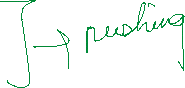 J → pushing